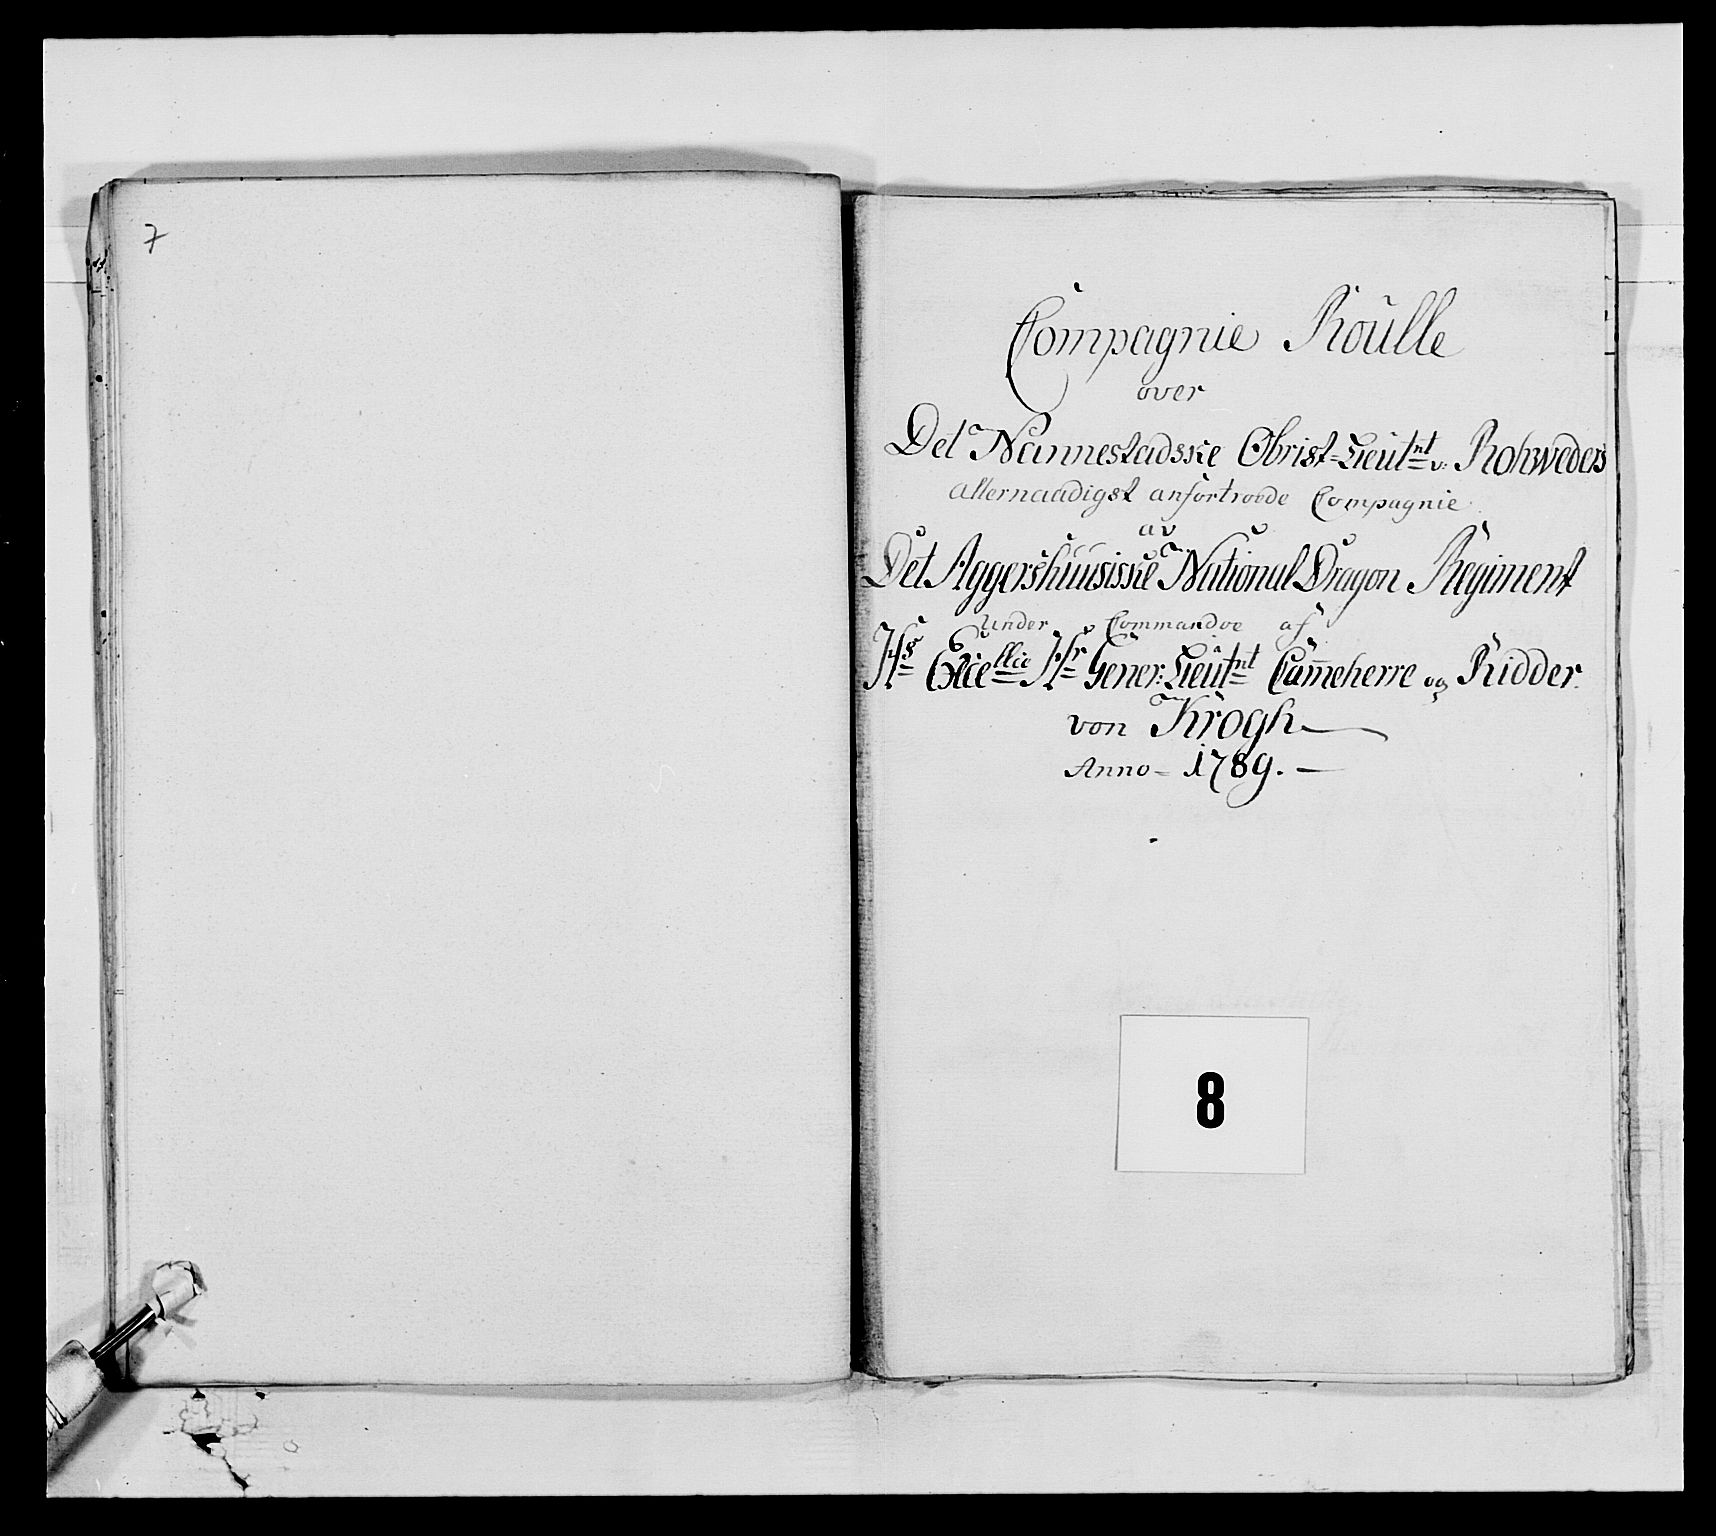 7
Compagnie Roulle
over
Det Nannestadske Obrist-Lieutnt v: Rohweders
allernaadigst anfortroede Compagnie
av
Det Aggershuusiske National Dragon Regiment
under Commandoe af
Hs Excellce Hr Gener: Lieutnt Cam̄eherre og Ridder
von Krogh
Anno - 1789. -
8